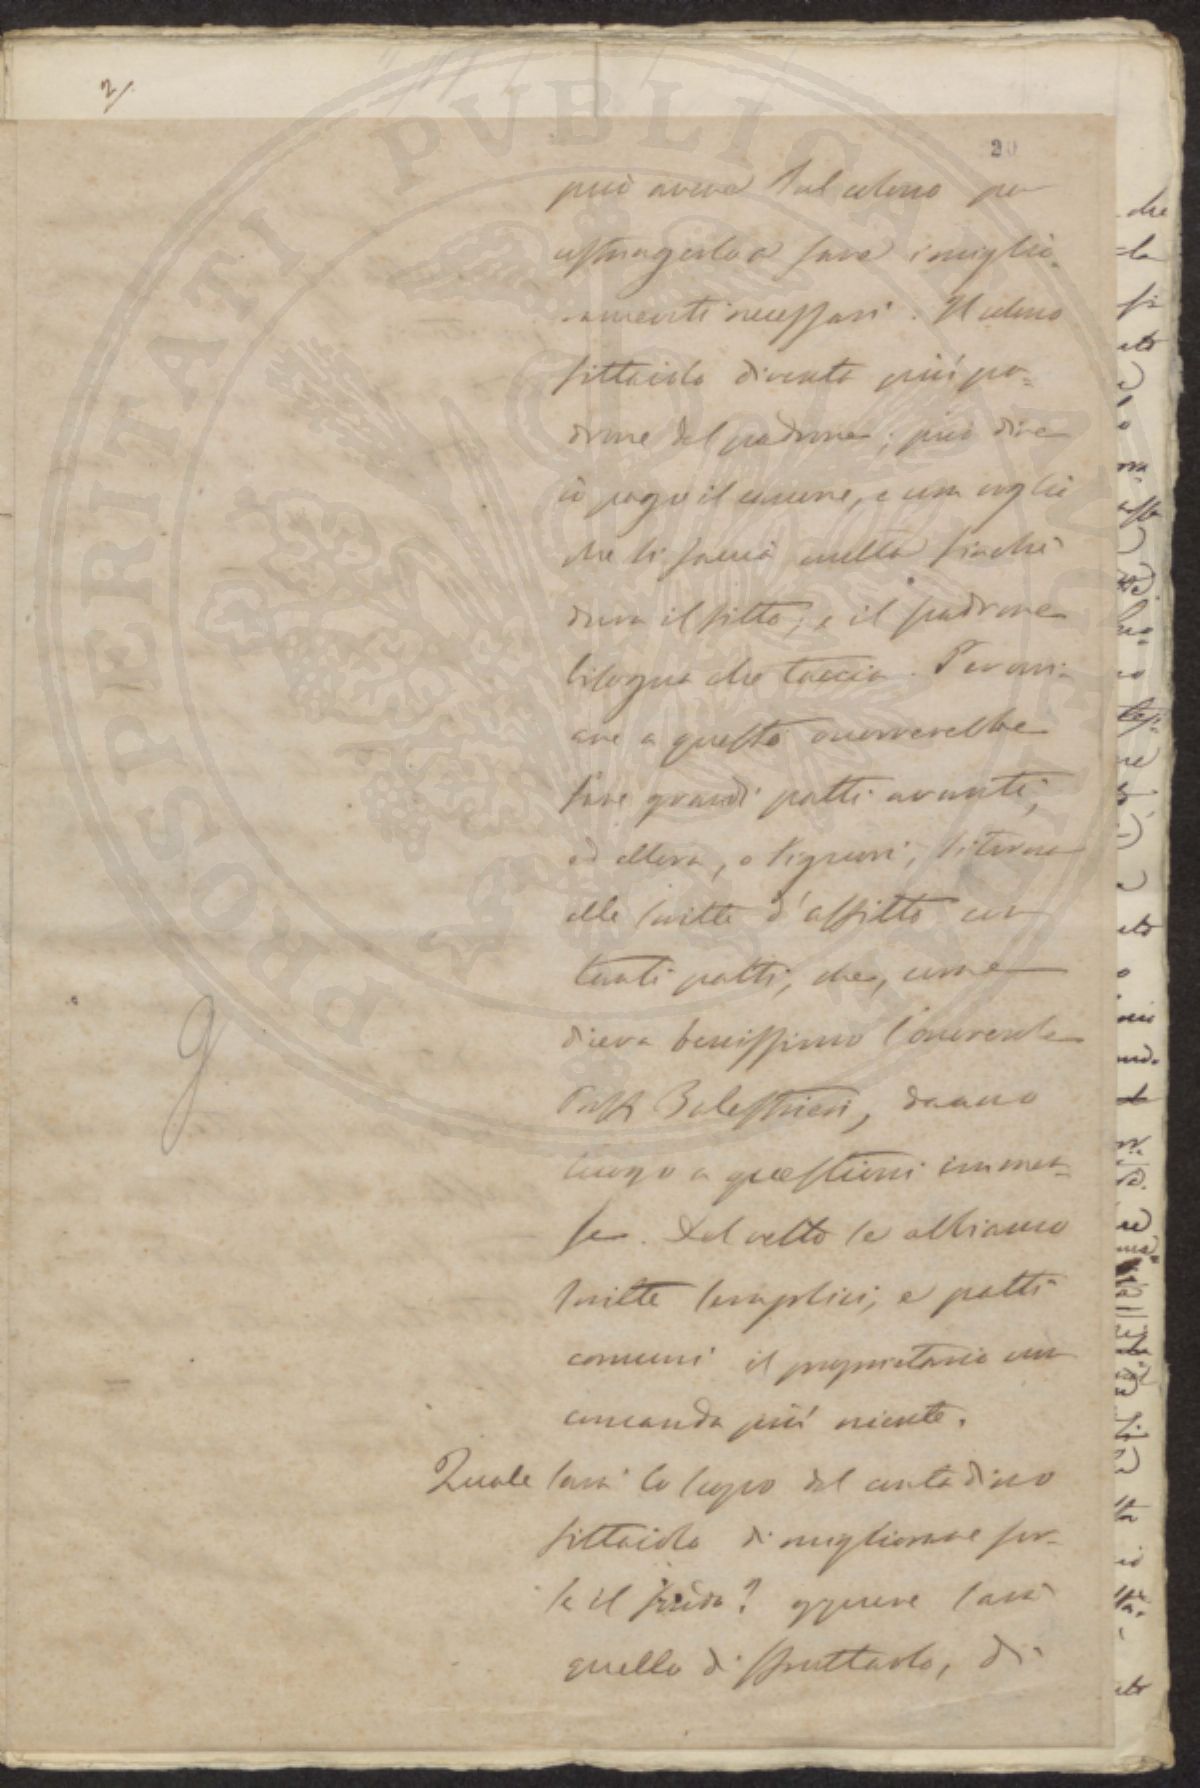 2/
20
può avere sul colono per
costringerlo a fare i miglio-
ramenti necessari. Il colono
fittaiolo diventa più pa-
drone del padrone; può dire
io pago il canone, e non voglio
che si faccia nulla finché
dura il fitto; e il padrone
bisogna che taccia. Per ovvi-
are a questo occorrerebbe
fare grandi patti avanti,
ed allora, o Signori, si torna
alle scritte d'affitto con
tanti patti, che, come
diceva benissimo l'onorevole
Balestrieri, danno
luogo a questioni immen-
se. Del resto se abbiamo
scritte semplici, e patti
comuni il proprietario non
comanda più niente.
Quale sarà lo scopo del contadino
fittaiolo di migliorare for-
se il fondo? oppure sarà
quello di sfruttarlo, di
g
PROSPERITATI PVBLICAE AVGENDAE